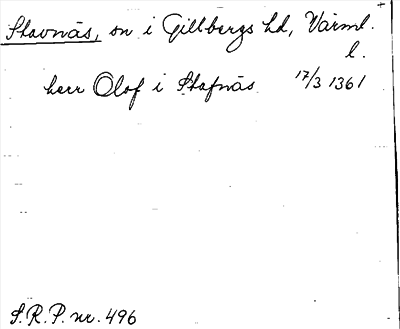 Stavnäs, sn i Gillbergs hd, Värml.
l.
herr Olof i Stafnäs 17/3 1361
S.R.P. nr. 496